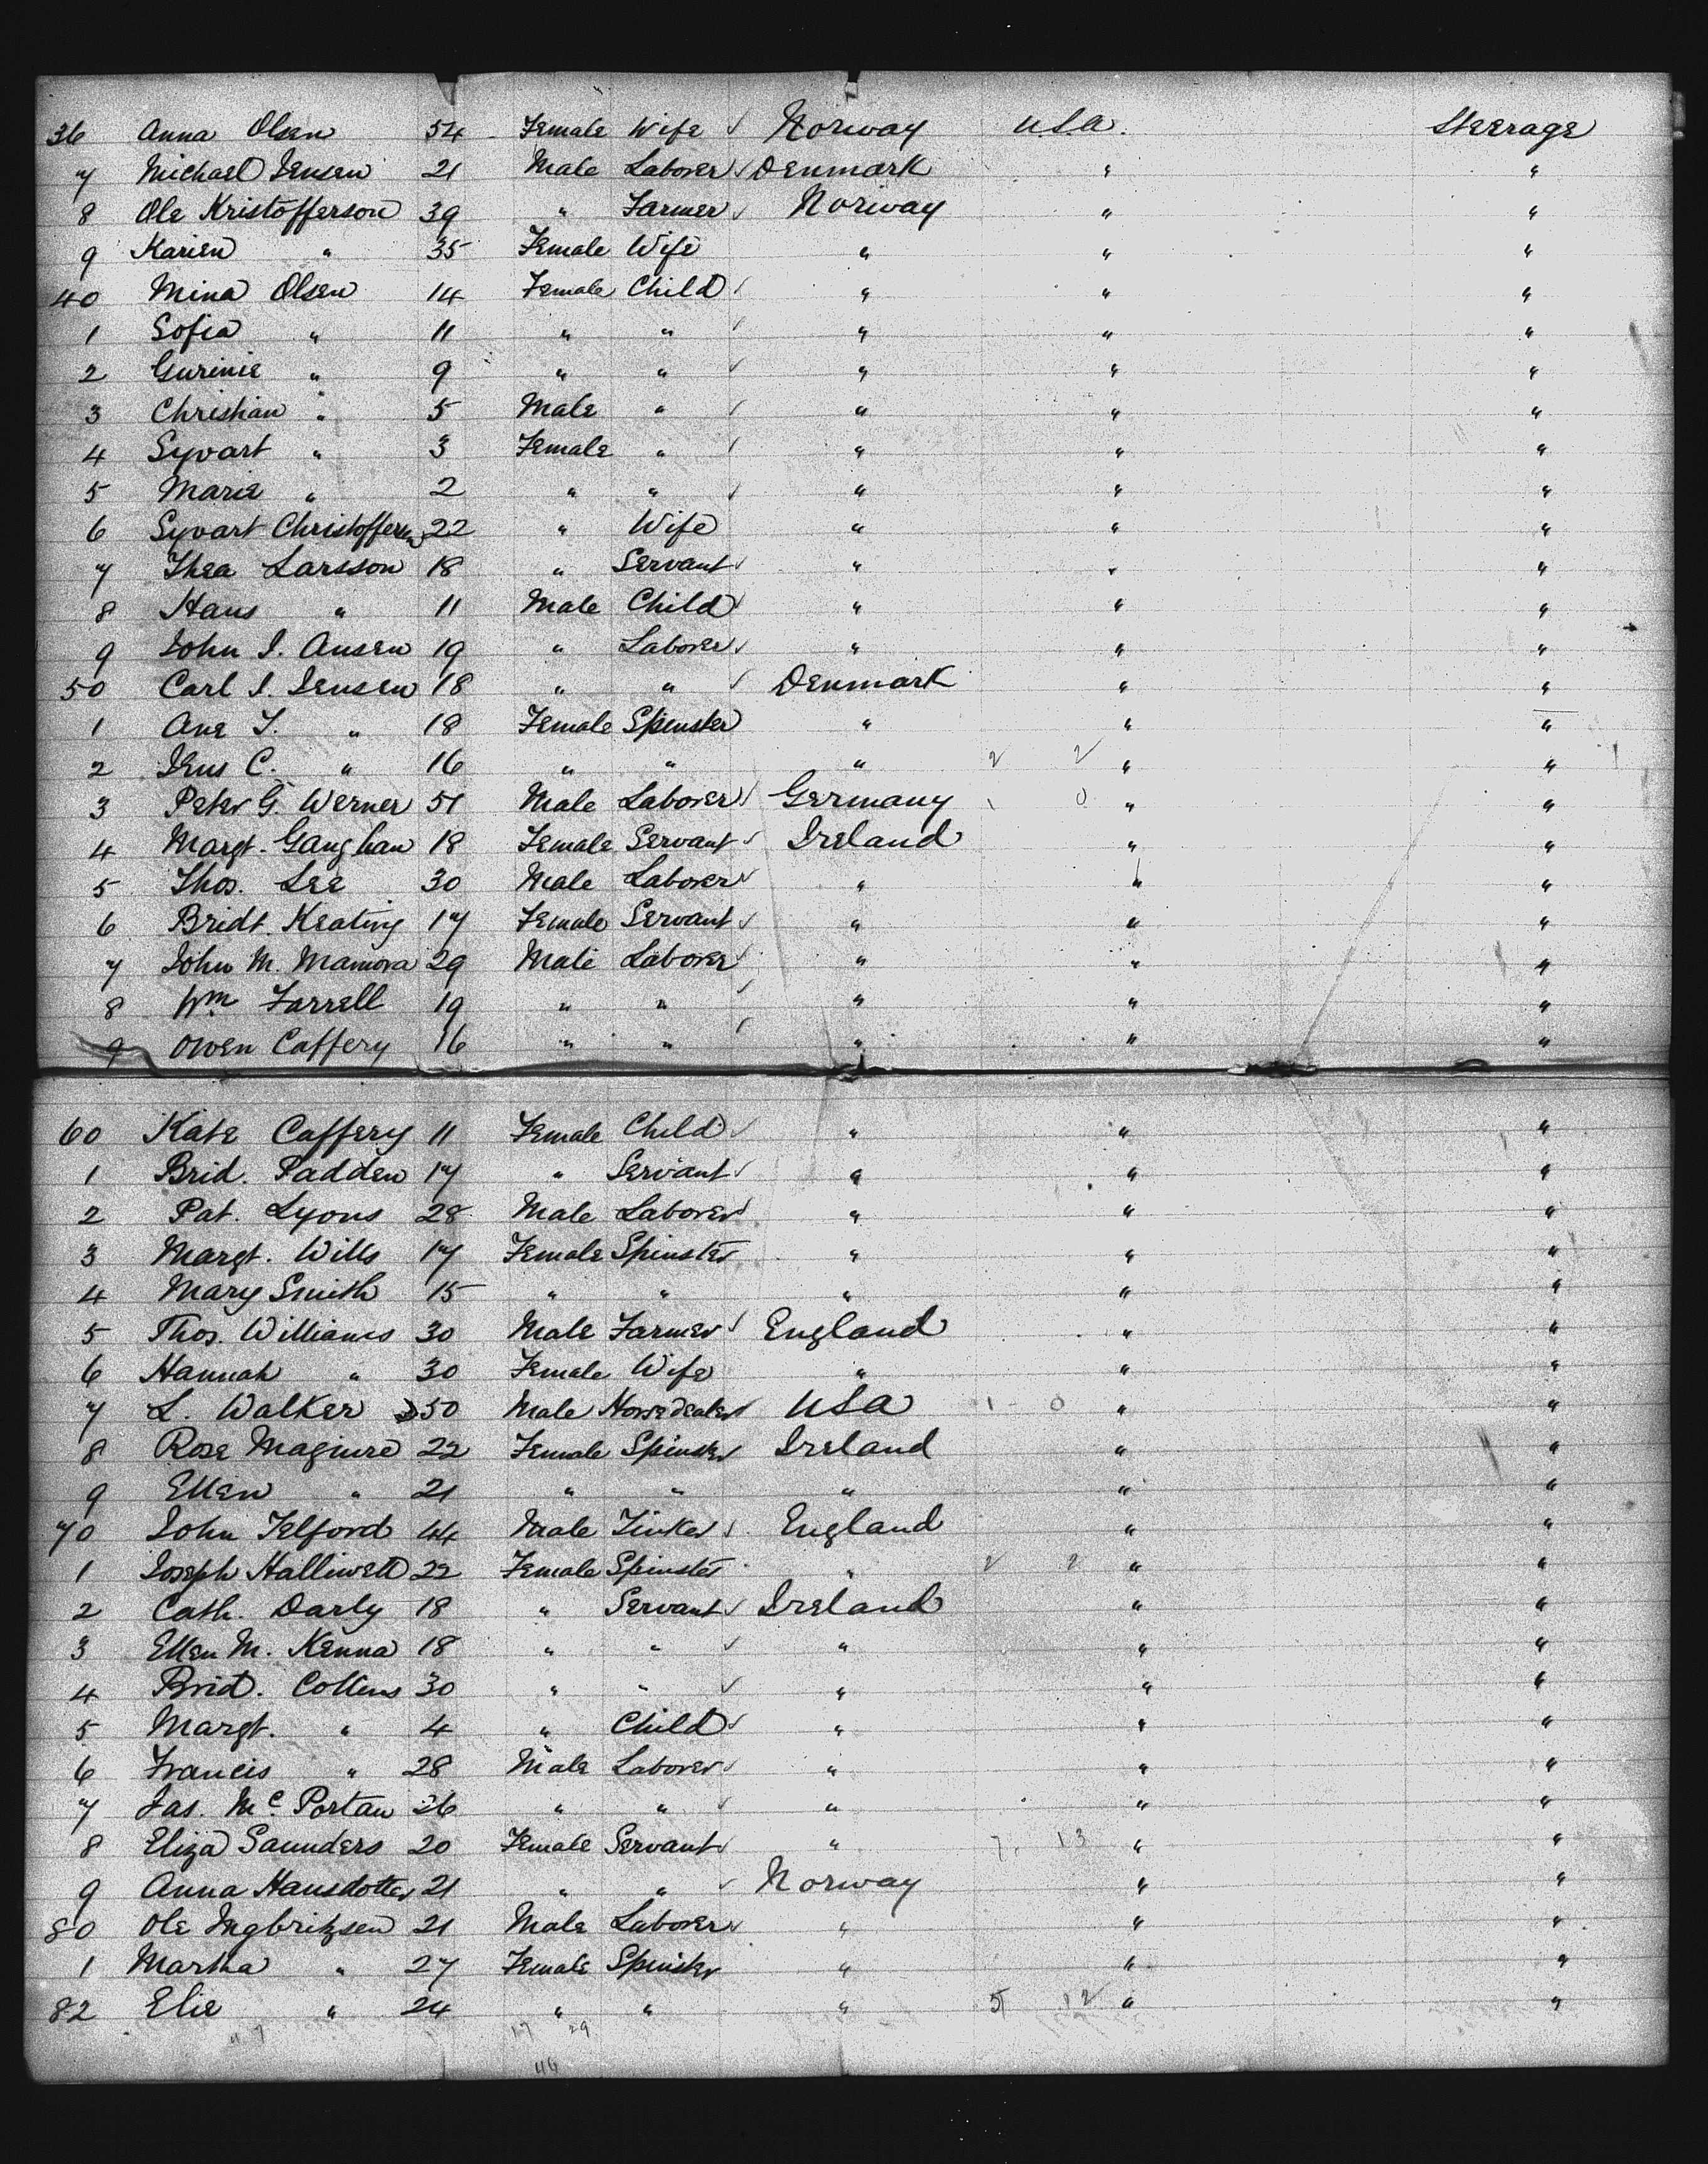 36 Anna Olsen 54 Female Wife ✓ Norway USA. Steerage
7 Michael Jensen 21 Male Laborer ✓ Denmark " "
8 Ole Kristofferson 39 " Farmer ✓ Norway " "
9 Karien " 35 Female Wife " " "
40 Mina Olsen 14 Female Child ✓ " " "
1 Sofia " 11 " " ✓ " " "
2 Gurinie " 9 " " ✓ " " "
3 Christian " 5 Male " ✓ " " "
4 Syvart " 3 Female " ✓ " " "
5 Marie " 2 " " ✓ " " "
6 Syvart Christoffersen 22 " Wife " " "
7 Thea Larsson 18 " Servant ✓ " " "
8 Hans " 11 Male Child ✓ " " "
9 John J. Ansen 19 " Laborer ✓ " " "
50 Carl J. Jensen 18 " " ✓ Denmark " "
1 Ane T. " 18 Female Spinster " " "
2 Jens C. " 16 " " " 2 2 " "
3 Peter G. Werner 51 Male Laborer ✓ Germany 1 0 " "
4 Margt. Gaughan 18 Female Servant ✓ Ireland " "
5 Thos. Lee 30 Male Laborer ✓ " " "
6 Bridt. Keating 17 Female Servant ✓ " " "
7 John M. Mamora 29 Male Laborer ✓ " " "
8 Wm Farrell 19 " " ✓ " " "
9 Owen Caffery 16 " " ✓ " " "
60 Kate Caffery 11 Female Child ✓ " " "
1 Brid. Padden 17 " Servant ✓ " " "
2 Pat. Lyons 28 Male Laborer ✓ " " "
3 Margt. Wills 17 Female Spinster " " "
4 Mary Smith 15 " " " " "
5 Thos. Williams 30 Male Farmer ✓ England " "
6 Hannah " 30 Female Wife " " "
7 L. Walker 50 Male Horsedealer ✓ USA 1 0 " "
8 Rose Maguire 22 Female Spinster Ireland " "
9 Ellen " 21 " " " " "
70 John Telford 44 Male Tinker ✓ England " "
1 Joseph Halliwell 22 Female Spinster " 2 2 " "
2 Cath. Darly 18 " Servant ✓ Ireland " "
3 Ellen M. Kenna 18 " " ✓ " " "
4 Brid. Collens 30 " " ✓ " " "
5 Margt. " 4 " Child ✓ " " "
6 Francis " 28 Male Laborer ✓ " " "
7 Jas. Mc Portan 26 " " ✓ " " "
8 Eliza Saunders 20 Female Servant ✓ " 7. 13 " "
9 Anna Hansdotter 21 " " ✓ Norway " "
80 Ole Ingbritzsen 21 Male Laborer ✓ " " "
1 Martha " 27 Female Spinster " " "
82 Elie " 24 " " " 5 12 " "
17 29
46